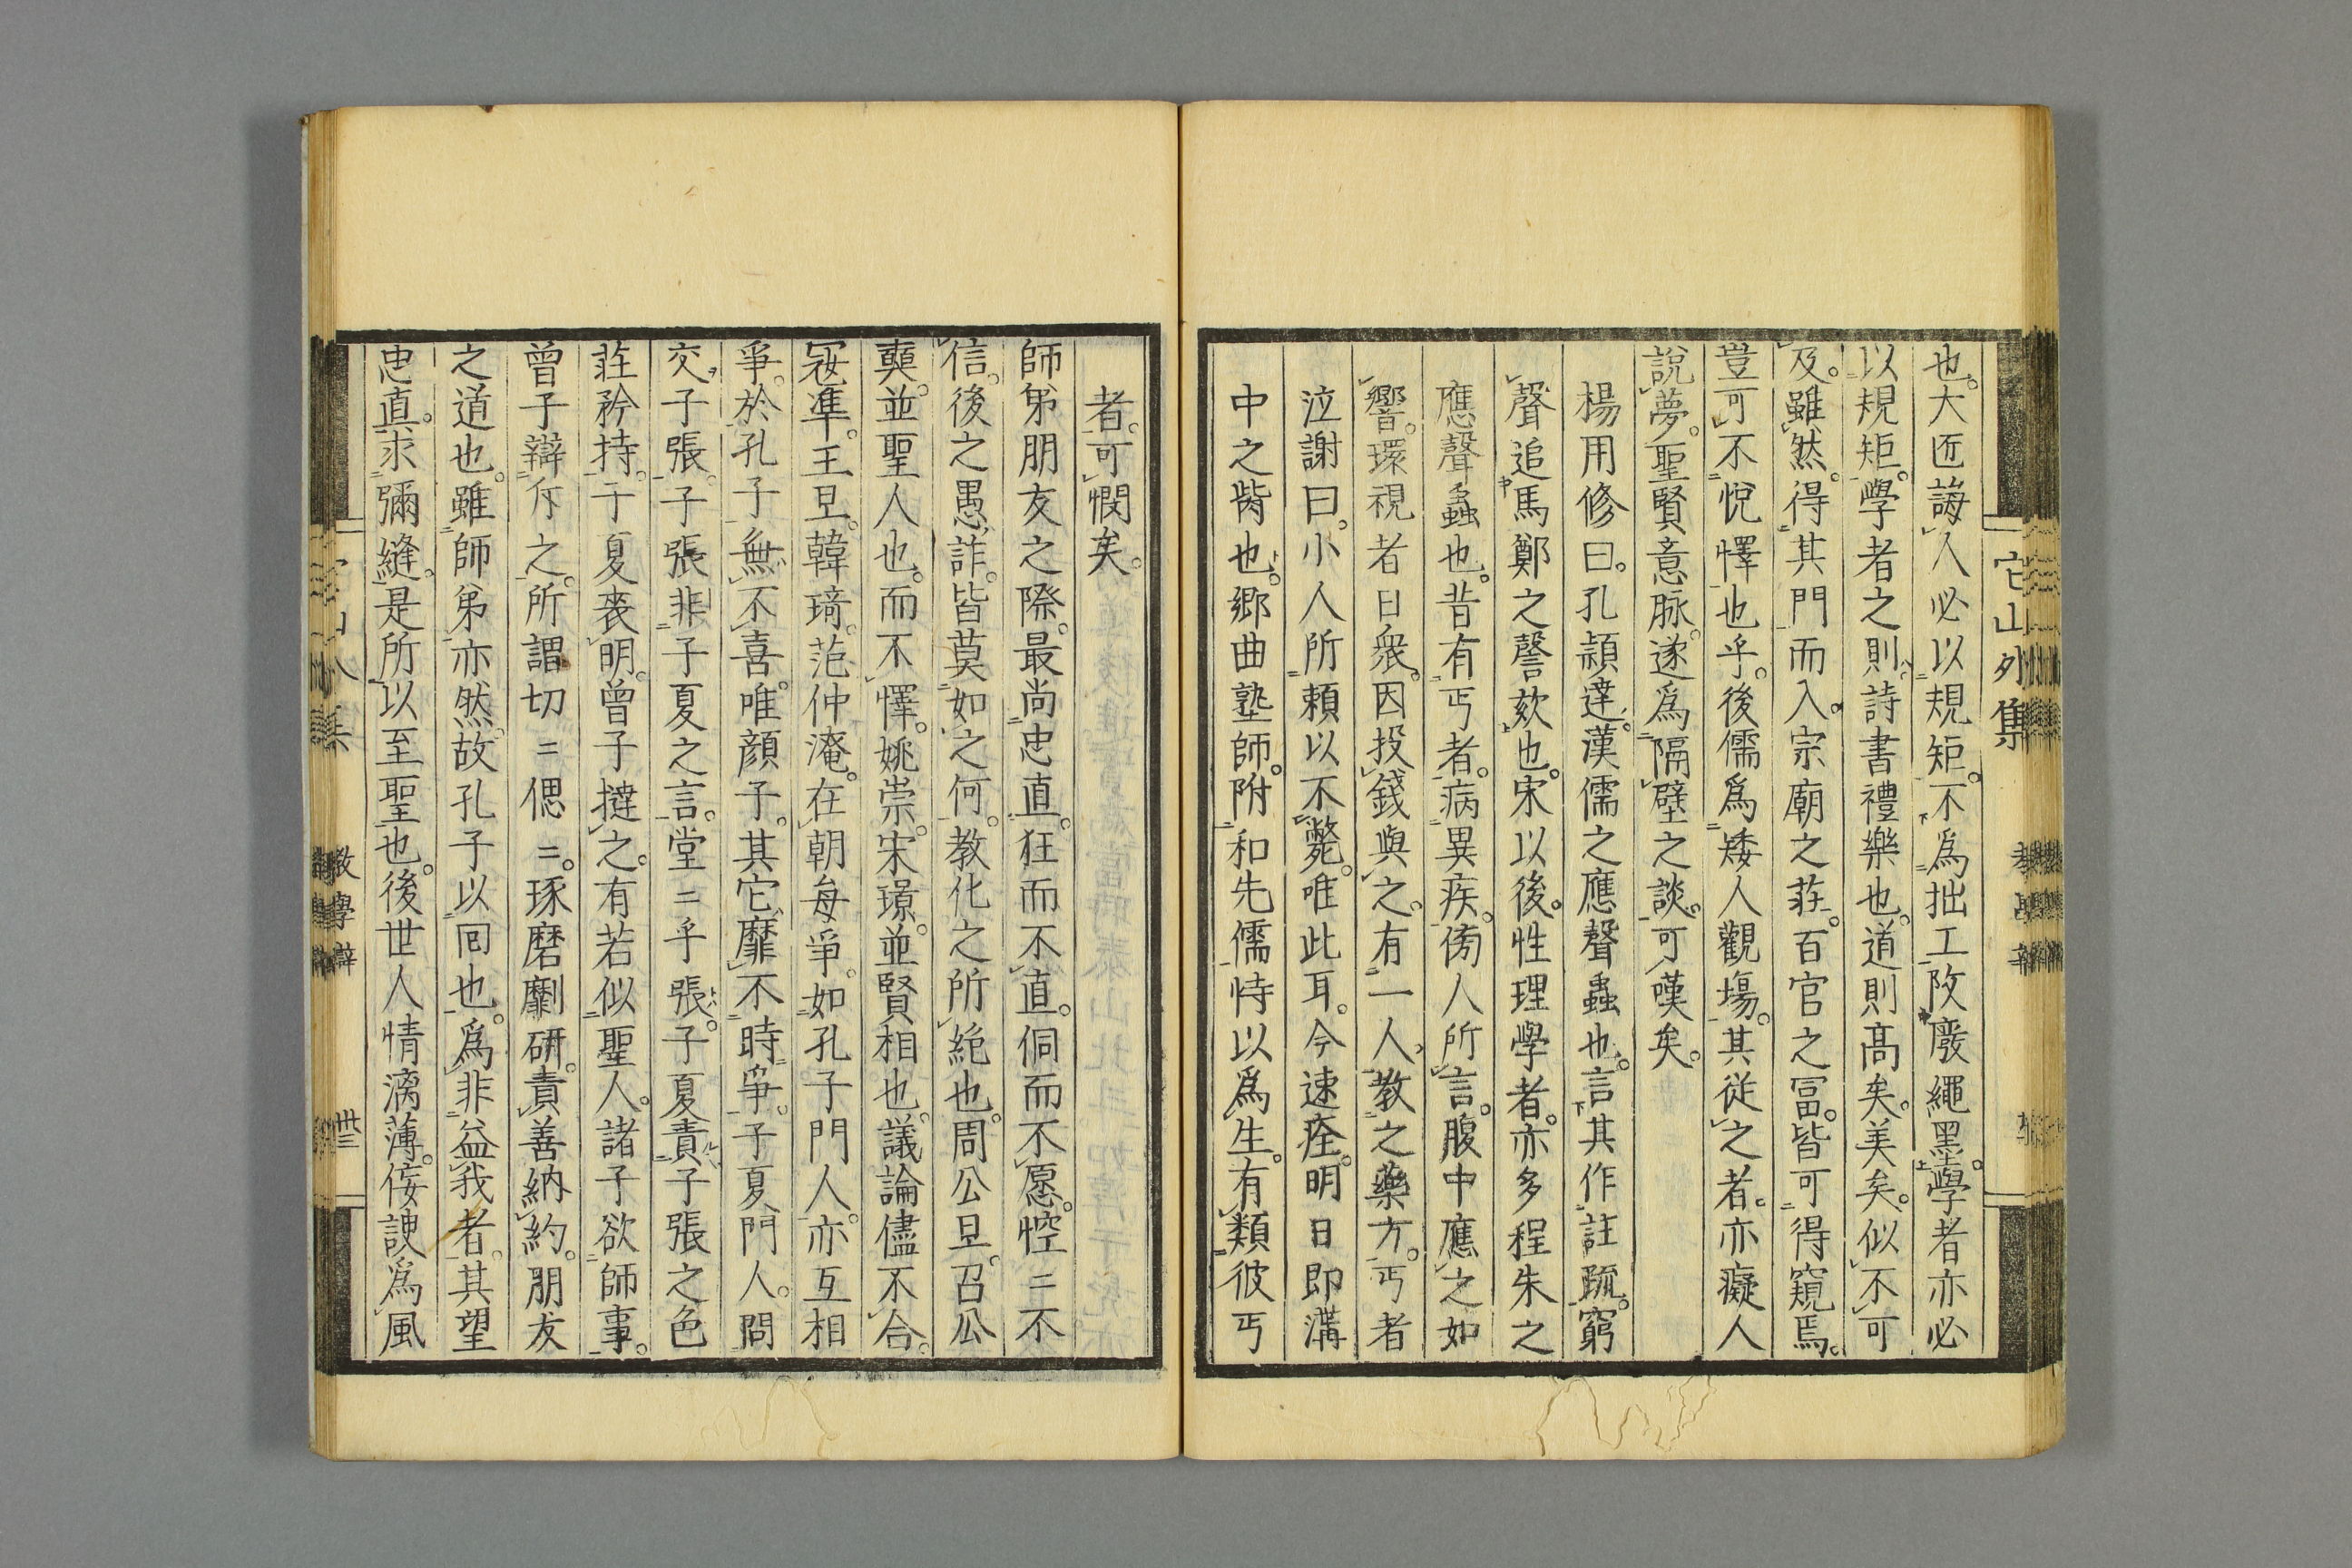 它山外集
也。大匠誨人必以規矩。不爲拙工改廢繩墨。學者亦必
以規矩。學者之則。詩書禮樂也。道則高矣。美矣。似不可
及。雖然。得其門而入。宗廟之莊。百官之冨。皆可得窺焉。
豈可不悅懌也乎。後儒爲矮人觀場。其従之者。亦癡人
說夢。聖賢意脉。遂爲隔壁之談。可嘆矣。
楊用修曰。孔頴達。漢儒之應聲蟲也。言其作註疏。窮
聲追馬鄭之謦欬也。宋以後。性理學者。亦多程朱之
應聲蟲也。昔有丐者。病異疾。傍人所言。腹中應之如
響。環視者日衆。因投錢與之。有一人。教之藥方。丐者
泣謝曰。小人所頼以不斃。唯此耳。今速痊。明日即溝
中之胔也。郷曲塾師。附和先儒恃以爲生。有類彼丐
者。可憫矣。
師弟朋友之際。最尚忠直。狂而不直。侗而不愿。悾〻不
信。後之愚詐。皆莫如之何。教化之所絶也。周公旦。召公
奭。並聖人也。而不懌。姚崇。宋璟。並賢相也。議論儘不合。
冦準。王旦。韓琦。范仲淹。在朝每爭。如孔子門人。亦互相
爭。於孔子無不喜。唯顔子。其它靡不時爭。子夏門人。問
交子張。子張非子夏之言。堂〻乎張。子夏責子張之色
莊矜持。子夏喪明。曾子撻之。有若似聖人。諸子欲師事。
曾子辯斥之。所謂切〻偲〻。琢磨劘研。責善納約。朋友
之道也。雖師弟亦然。故孔子以囘也。爲非益我者。其望
忠直。求彌縫。是所以至聖也。後世人情漓薄。侫諛爲風
教學辯
丗三